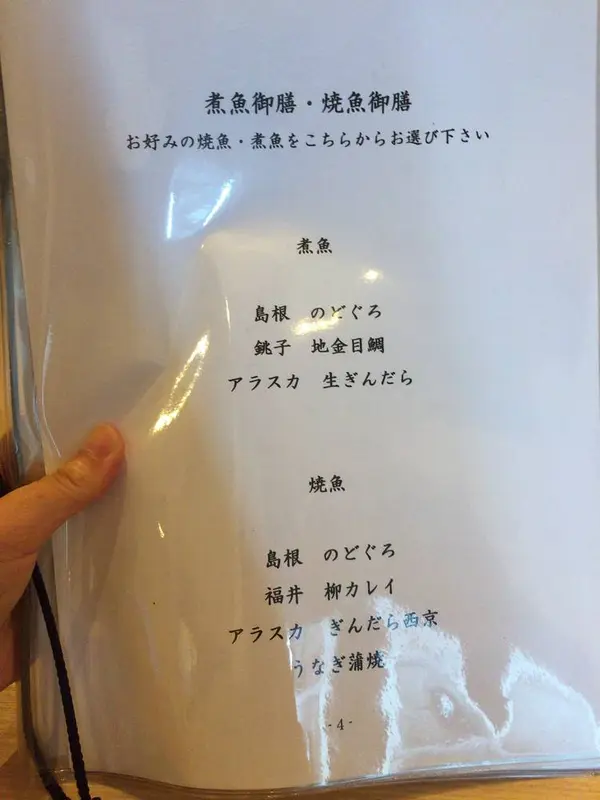 煮魚御膳・焼魚御膳
お好みの焼魚・煮魚をこちらからお選び下さい
煮魚
島根　のどぐろ
銚子　地金目鯛
アラスカ　生ぎんだら
焼魚
島根　のどぐろ
福井　柳カレイ
アラスカ　ぎんだら西京
うなぎ蒲焼
-4-